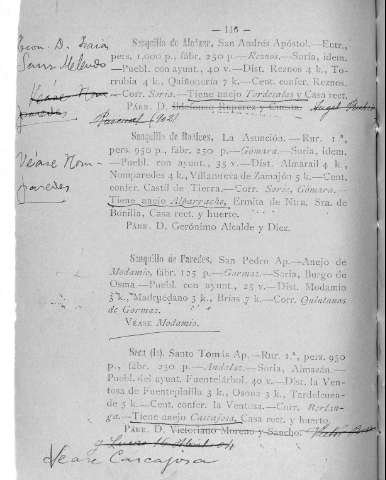 — 116 —
Sauquillo de Alcázar, San Andrés Apóstol.—Entr.,
pers. 1,000 p., fábr. 250 p.—Reznos.—Soria, idem.
—Puebl. con ayunt., 40 v.—Dist. Reznos 4 k., To-
rrubia 4 k., Quiñonería 7 k.—Cent. confer. Reznos.
—Corr. Soria.—Tiene anejo Tordesalas y Casa rect.
PÁRR. D. Ildefonso Ruperez y
Véase Nom-
paredes
Sauquillo de Boñices, La Asunción.—Rur. 1.ª,
pers. 950 p., fábr. 250 p.—Gómara.—Soria, idem.
—Puebl. con ayunt., 35 v.—Dist. Almarail 4 k.,
Nomparedes 4 k., Villanueva de Zamajón 5 k.—Cent.
confer. Castil de Tierra.—Corr. Soria, Gómara.—
Tiene anejo Albarracho, Ermita de Ntra. Sra. de
Bonilla, Casa rect. y huerto.
PÁRR. D. Gerónimo Alcalde y Diez.
Sauquillo de Paredes, San Pedro Ap.—Anejo de
Modamio, fábr. 125 p.—Gormaz.—Soria, Burgo de
Osma—Puebl. con ayunt., 25 v.—Dist. Modamio
3 k., Madruédano 3 k., Brías 7 k.—Corr. Quintanas
de Gormaz.
VÉASE Modamio.
Seca (la), Santo Tomás Ap.—Rur. 1.ª, pers. 950
p., fábr. 250 p.—Andaluz.—Soria, Almazán.—
Puebl. del ayunt. Fuentelárbol, 40 v.—Dist. la Ven-
tosa de Fuentepinilla 3 k., Osona 3 k., Tardelcuen-
de 5 k.—Cent. confer. la Ventosa.—Corr. Berlan-
ga.—Tiene anejo Cascajosa, Casa rect. y huerto.
PÁRR. D. Victoriano Moreno y Sancho.
Véase Cascajosa